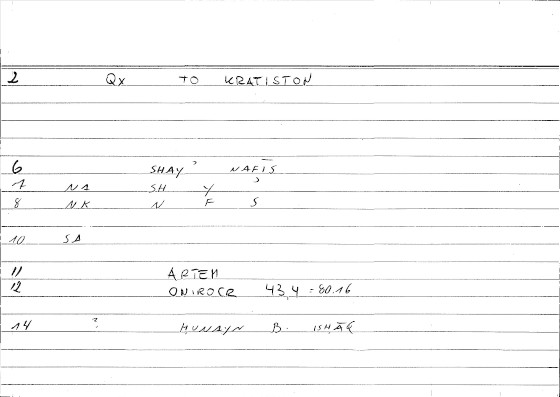 2 Qx TO KRATISTON
6 SHAY ʾ NAFĪS
7 NA SH Y ʾ
8 NK N F S
10 SA
11 ARTEM
12 ONIROCR 43,4 = 80.16
14 ? ḤUNAYN B. ISḤĀQ